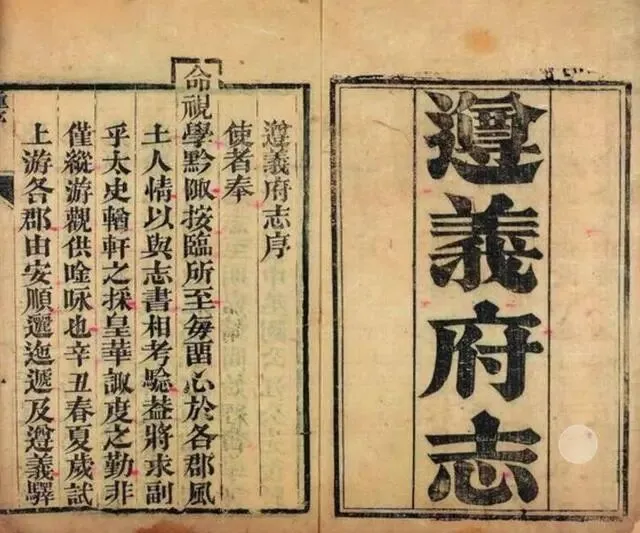 遵義府志
遵義府志序
使者奉
命視學黔陬按臨所至每畱心於各郡風
土人情以與志書相考騐葢將求副
乎太史輶軒之採皇華諏度之勤非
僅縱游觀供唫咏也辛丑春夏歲試
上游各郡由安順邐迤遞及遵義驛